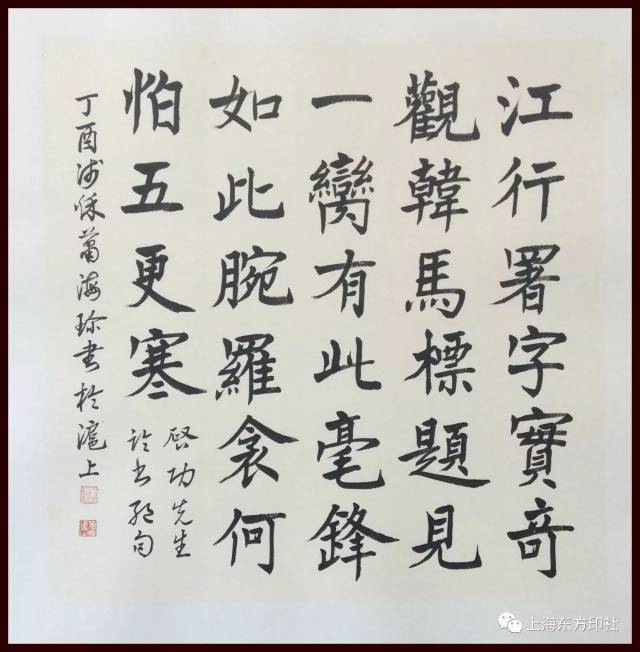 江行署字寶竒
觀韓馬標題見
一臠有此毫鋒
如此腕羅衾何
怕五更寒
啓功先生
論書絕句
丁酉淺秌蕭海珎書於滬上
上海东方印社